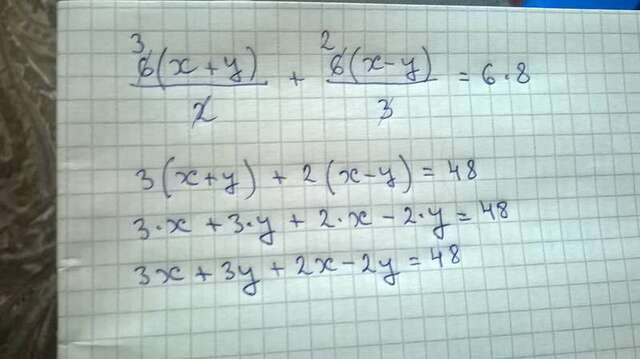 3 6(x + y) / 2 + 2 6(x - y) / 3 = 6 · 8
3(x+y) + 2(x-y) = 48
3·x + 3·y + 2·x - 2·y = 48
3x + 3y + 2x - 2y = 48